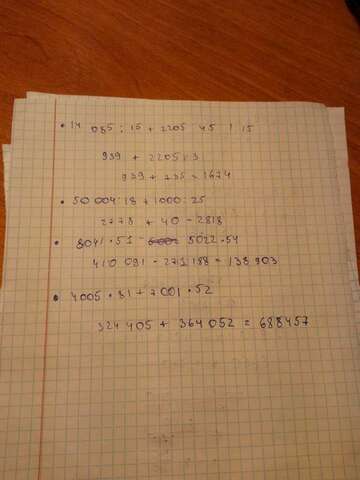 • 14 085 : 15 + 2205 45 : 15
939 + 2205 : 3
939 + 735 = 1674
• 50 004 : 18 + 1000 : 25
2778 + 40 = 2818
• 8041 • 51 - 5022 • 54
410 091 - 271 188 = 138 903
• 4005 • 81 + 7001 • 52
324 405 + 364 052 = 688457